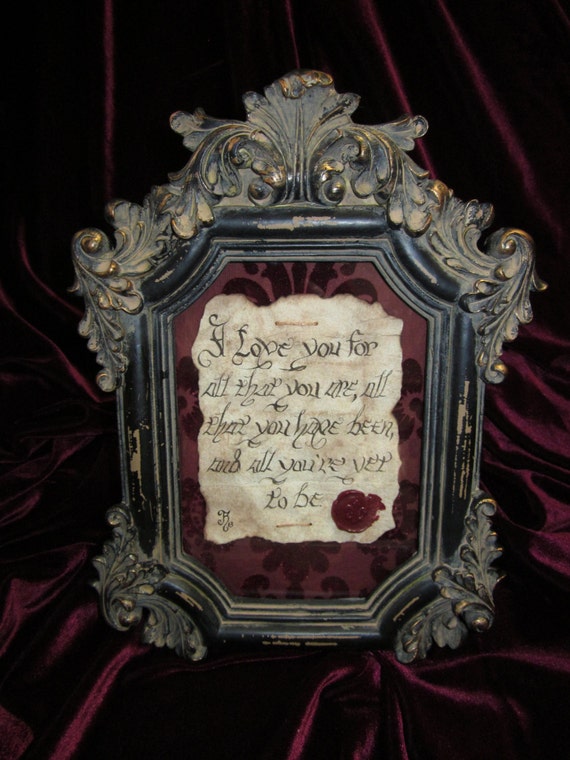 I Love you for
all that you are, all
that you have been,
and all you're yet
to be.